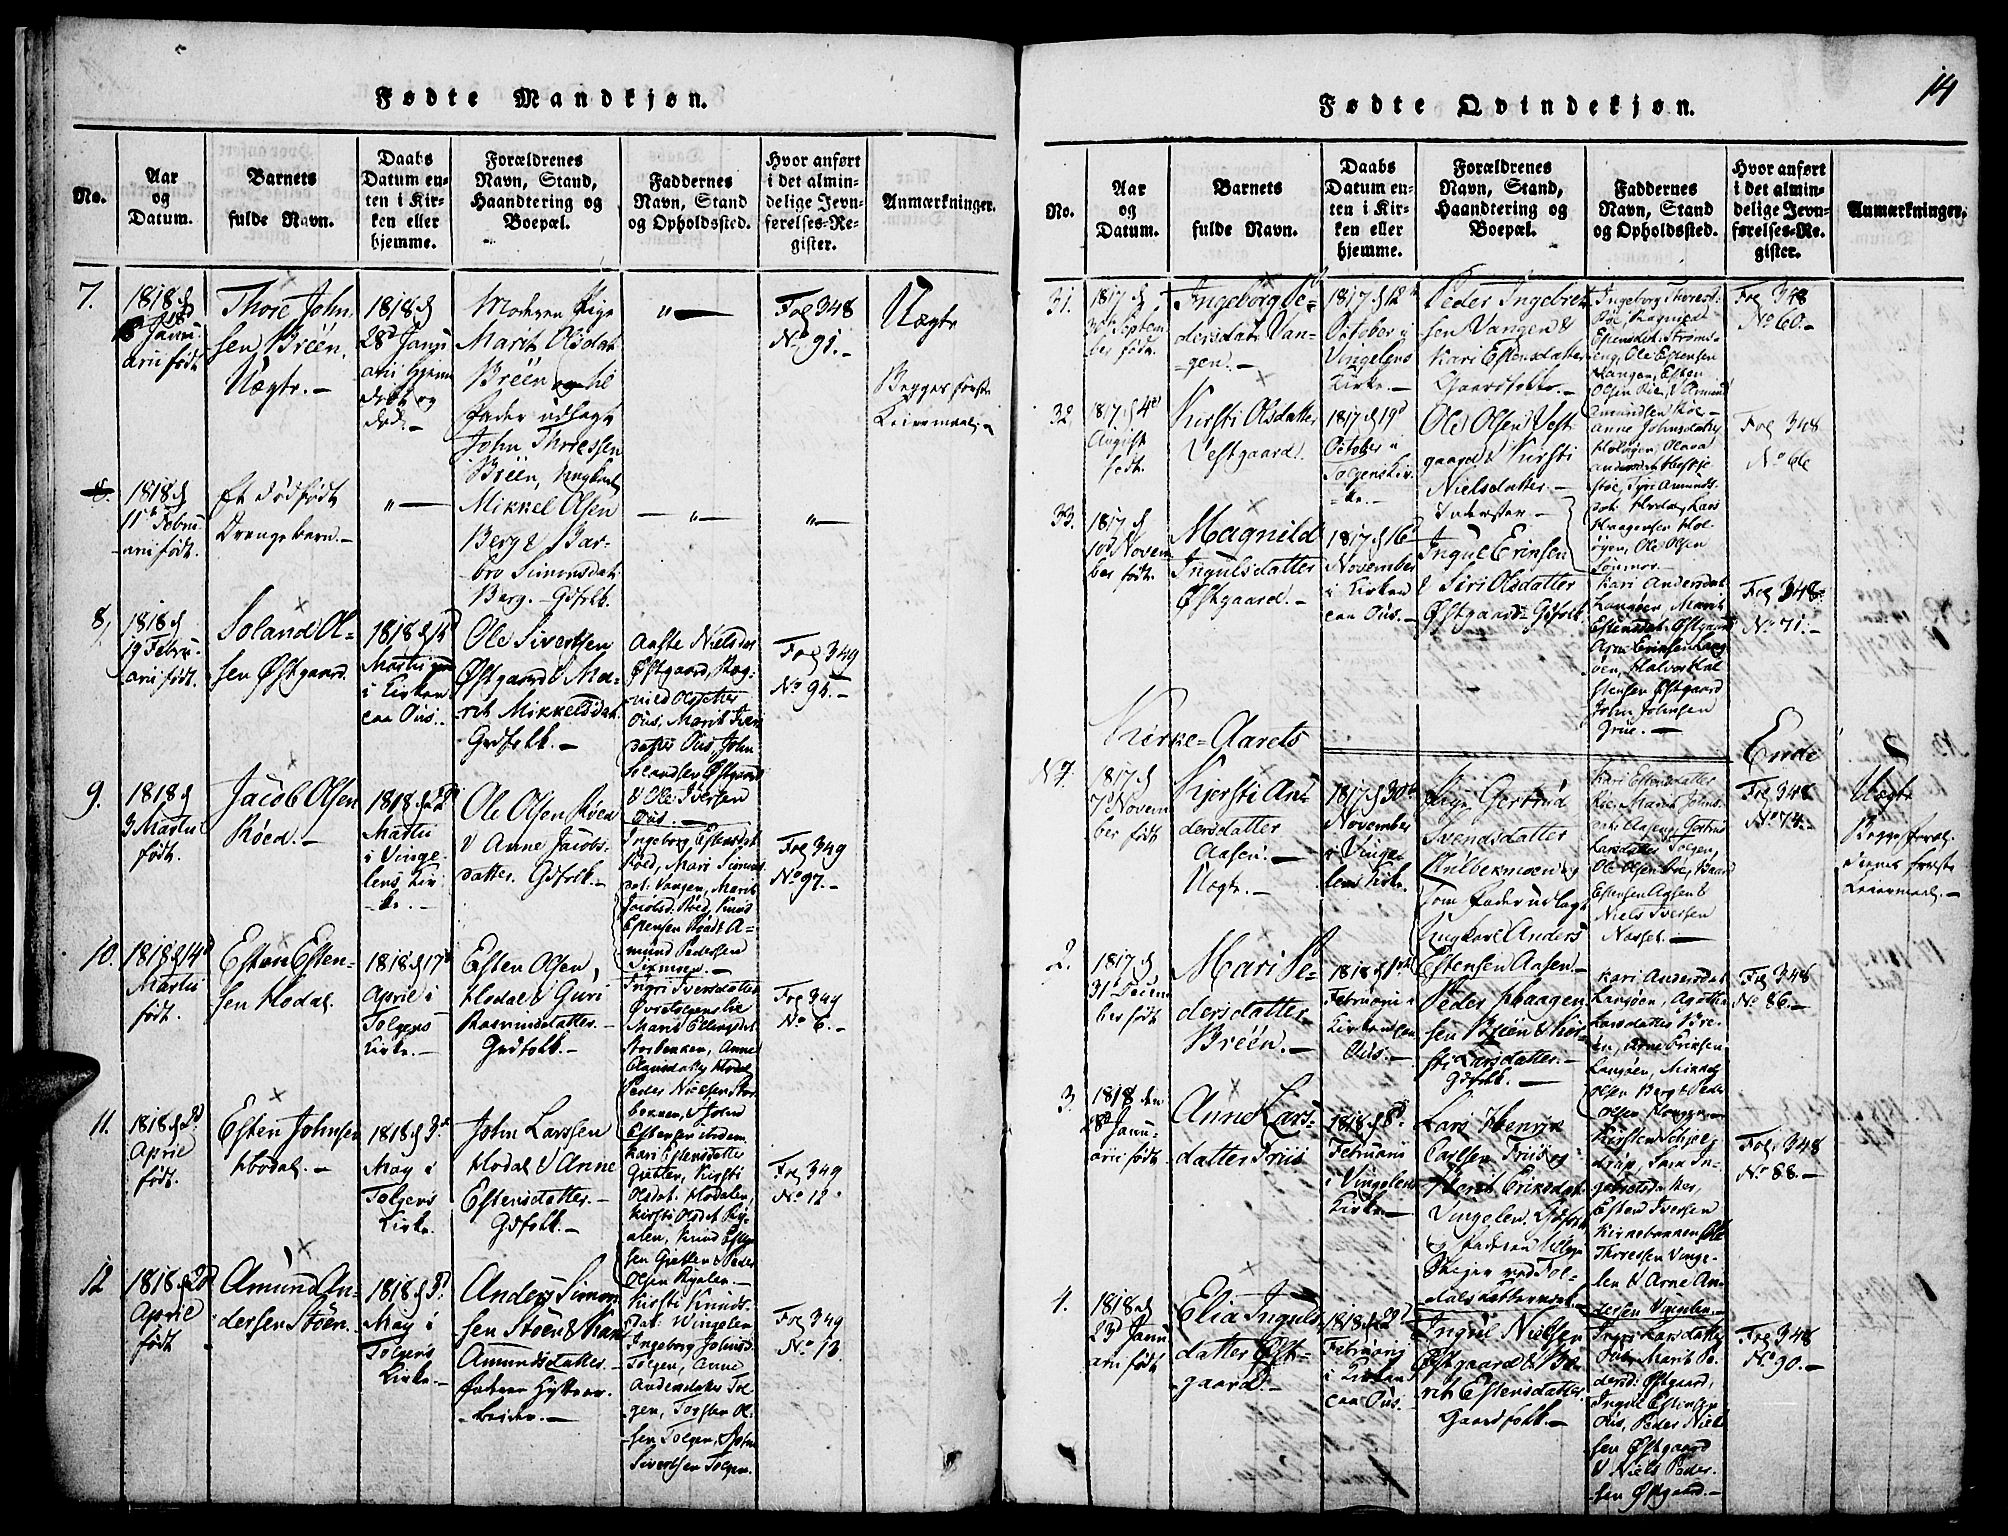 Fødte Mandkjøn.
No.
Aar
og
Datum.
Barnets
fulde Navn.
Daabs
Datum en-
ten i Kir-
ken eller
hjemme.
Forældrenes
Navn, Stand,
Haandtering og
Boepæl.
Faddernes
Navn, Stand
og Opholdssted.
Hvor anført
i det almin-
delige Jevn-
førelses-Re-
gister.
Anmærkninger.
7.
1818 d
Janu-
arii født
Thore John-
sen Bréen.
Uægte.-
1818 d
28d Janu
arii hjem
død.-
Moderen Pige
Marit Olsdat
Bréen og til
Fader udlagt
John Thoressen
Bréen, Ungkarl
"-
Fol 348
No 91.-
Uægte
Begges første
Leiermaal.-
8.
1818 d
11te Febru-
arii født.
Et dødfødt
Drengebarn.-
"-
Mikkel Olsen
Berg & Bar-
bro Simonsdat.
Berg.- Gdfolk.
-"-
"-
8,
1818 d
19 Febru-
arii født.
Soland Ol-
sen Østgaard.
1818 d 15d
Martii
i Kirken
caa Ous.-
Ole Sivertsen
Østgaard & Ma-
rit Mikkelsdat.
Gdfolk.-
Aaste Nielsdat
Østgaard, Rag-
nild Olsdatter
Ous, Marit Iver
datter Ous, John
Solandsen Østgaard
& Ole Iversen
Ous.-
Fol 349
No 95.-
9.
1818 d
3 Martii
født.
Jacob Olsen
Röed.-
1818 d 22d
Martii
i Vinge-
lens Kir-
ke.-
Ole Olsen Röed
& Anne Jacobs-
datter. Gdfolk.-
Ingeborg Estensdat
Röed, Mari Simons
dat. Vangen, Marit
Jacobsd. Röed, Knud
Estensen Röed & A-
mund Pedersen
Fol 349
No 97.-
10.
1818 d 14d
Martii
født.
Esten Esten-
sen Hodal.
1818 d 17d
April i
Tolgens
Kirke.-
Esten Olsen
Hodal & Guri
Rasmusdatter.-
Gdfolk.-
Ingri Iversdatter
Øvretolgensli
Marit Ellingsdat
Storbekken, Anne
Hodal
Peder Nielsen Stor
bekken, & John
Estensen ibidem.
Fol 349
No 6.-
11.
1818 d 2d
April
født.
Esten Johnsen
Hodal.-
1818 d 3d
May i
Tolgens
Kirke.
John Larssen
Hodal & Anne
Estensdatter.-
Gdfolk.-
Kari Estensdatter
Gjetten, Kirsti
Olsdat. Hodalen,
Kirsti Olsdat Ry-
alen, Knud Esten
sen Gjetten & Peder
Olsen Ryalen.-
Fol 349
No 12.
12
1818 d 2d
April
født
Amund An-
dersen Stöen.-
1818 d 3d
May i
Tolgens
Kirke.-
Anders Simon
sen Stöen & Kari
Amundsdatter.-
Faderen Hyttear-
beider.-
Kirsti Knuds-
dat. Vingelen
Ingeborg Johnsd.
Tolgen, Anne
Andersdatter Tol
gen, Torsten Ol-
sen Tolgen, & John
Sivertsen Tolgen.
Fol 349
No 13.
14
Fødte Qvindekjøn.
No.
Aar
og
Datum.
Barnets
fulde Navn.
Daabs
Datum en-
ten i Kir-
ken eller
hjemme.
Forældrenes
Navn, Stand,
Haandtering og
Boepæl.
Faddernes
Navn, Stand
og Opholdssted.
Hvor anført
i det almin-
delige Jevn-
førelses-Re-
gister.
Anmærkninger.
31.
1817 d
30te Septem-
ber født.
Ingeborg Pe-
dersdatr Van-
gen.-
1817 d 12te
October i
Vingelens
Kirke.-
Peder Ingebret
sen Vangen &
Kari Estensdatter
Gaardfolk.-
Ole Estensen
Vangen, Esten
Olsen Rie, & Amund
Amundsen Roe.-
Fol 348
No 60.-
32.
1817 d 4de
August
født.
Kirsti Olsdatter
Vestgaard.
1817 d 19d
October i
Tolgens Kir-
ke.-
Ole Olsen Vest
gaard & Kirsti
Nielsdatter.-
Inderster.-
Anne Johnsdatter
Haagensen Hol-
öyen, Ole Olsen
Fol 348
No 66
33.
1817 d
10d Novem
ber født.
Magnild
Ingulsdatter
Østgaard.-
1817 d 16
November
i Kirken
caa Ous.-
Ingul Erirsen
& Siri Olsdatter
Østgaard Gdfolk.
Kari Andersdat
Langöen, Marit
Estensdat. Østgaard
Arne Erirsen Lang
öen, Halvor Hal
stensen Østgaard
John Johnsen
Grue.-
Fol 348.
No 71.-
Kirke-Aarets
Ende
No 1.
1817 d
7 Novem
ber født
Kjersti An-
dersdatter
Aasen.-
Uægte.-
1817 d 30te
November
i Vinge
lens Kirke.
Pige Gertrud
Svendsdatter
Kulbermoen og
som Fader udlagt
Ungkarl Anders
Estensen Aasen.-
Kari Estensdatter
Rie, Marit Johns-
dat. Aasen, Gertrud
Larsdatter Tolgen,
Ole Olsen Rie, Baard
Estensen Aasen &
Niels Iversen
Fol 348
No 74.-
Uægte
Begge
første
Leiermaal.-
2.
1817 d
31te Decem
ber født
Mari Pe-
dersdatter
Bréen.-
1818 d 1ste
Februarii i
Kirken caa
Ous.-
Peder Haagen
sen Bréen & Kir-
sti Larsdatter.-
Gdfolk.-
Kari Andersdat
Langöen, Agathe
Larsdatter Bré-
en, Arne Erirsen
Langöen, Mikkel
Olsen Berg & Peder
Olsen
Fol 348
No 86.-
3.
1818 den
28d Janu-
arii født.
Anne Lars-
datter Friis
1818 d 8d
Februarii
i Vingelens
Kirke.-
Lars Henrik
Carlsen Friis og
Marit Eriksdat.
Vingelen, Gdfolk
og Faderen tillige
Skejer ved Tol-
Kirsten
Esten Iversen
Kirkebakken, Ole
Thoressen Vinge-
len & Arne An-
dersen Vingelen.-
Fol 348
No 88.-
4.
1818 d
23d Janu
arii født.
Elia Inguls
datter Øst-
gaard.-
1818 d 22d
Februarii
i Kirken
caa Ous.
Ingul Nielsen
Østgaard & Be-
rit Estensdatter.
Gaardfolk.-
Ingri Larsdatter
Marit Pe-
dersd. Østgaard,
Ingul Estensen
Ous, Peder Niel
sen Østgaard
& Niels Peder-
sen Østgaard.-
Fol 348
No 90.-